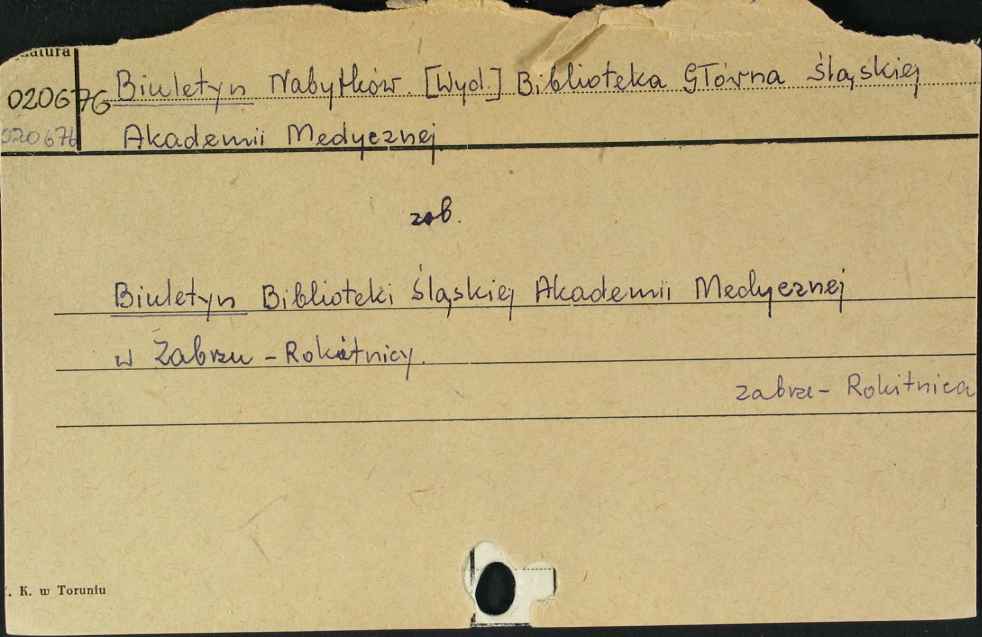 020676 Biuletyn Nabytków. [Wyd.] Biblioteka Główna Śląskiej
020676 Akademii Medycznej
zob.
Biuletyn Biblioteki Śląskiej Akademii Medycznej
w Zabrzu - Rokitnicy.
Zabrze - Rokitnica
K. w Toruniu